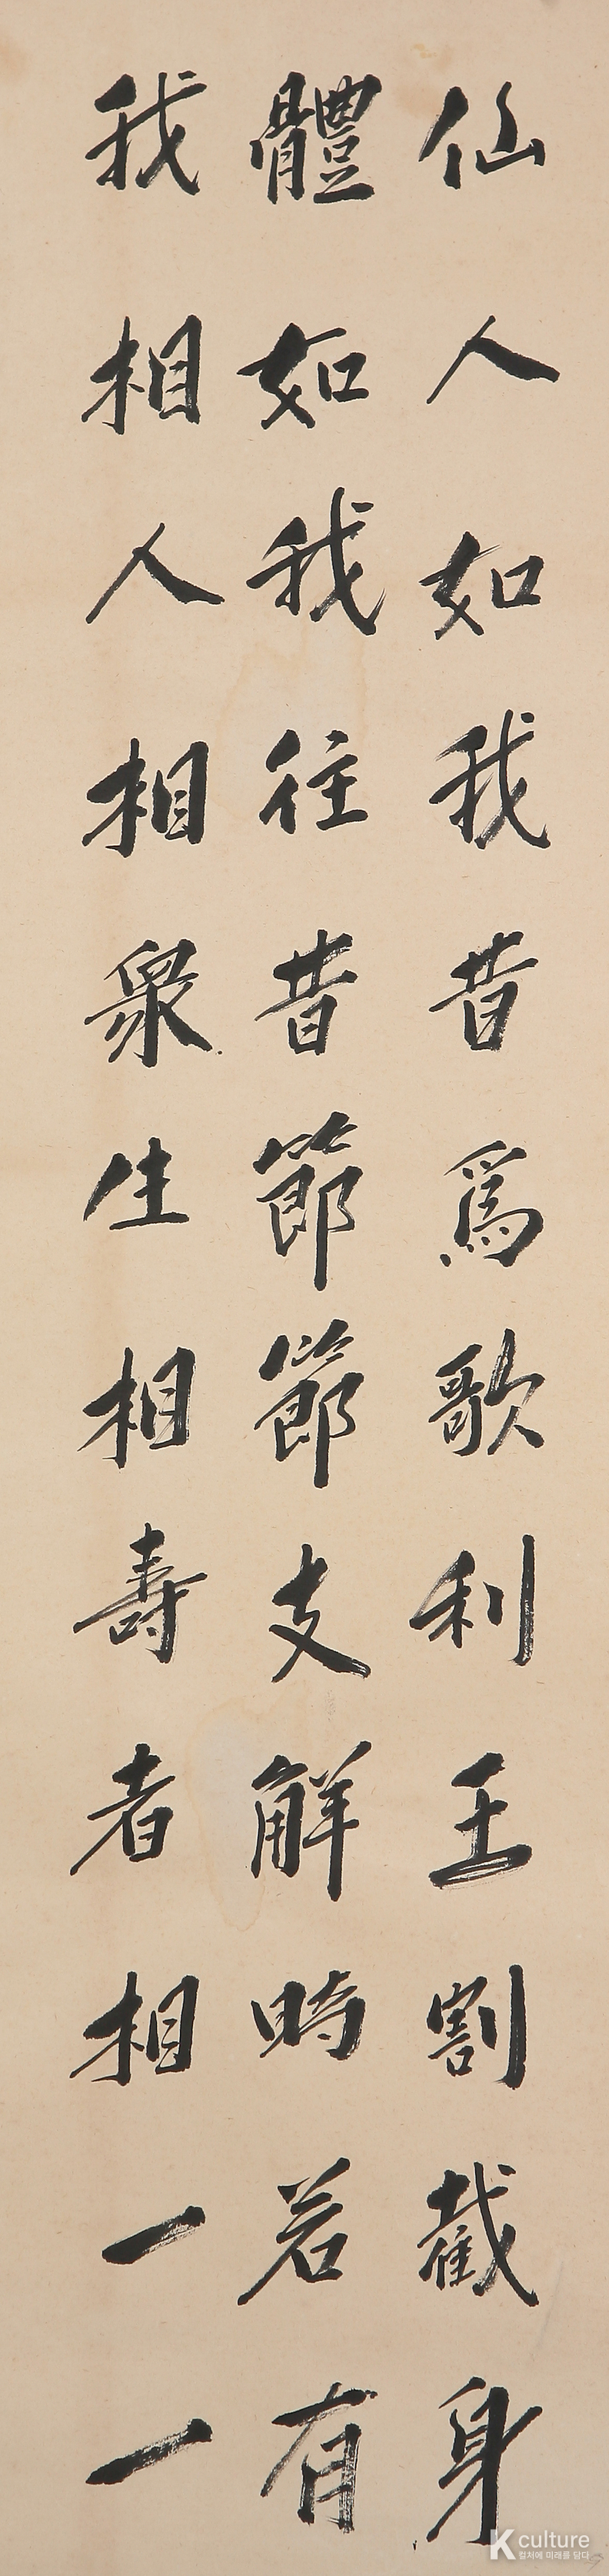 仙人如我昔爲歌利王割截身
體如我往昔節節支解時若有
我相人相衆生相壽者相一一
K culture
컬처에 미래를 담다